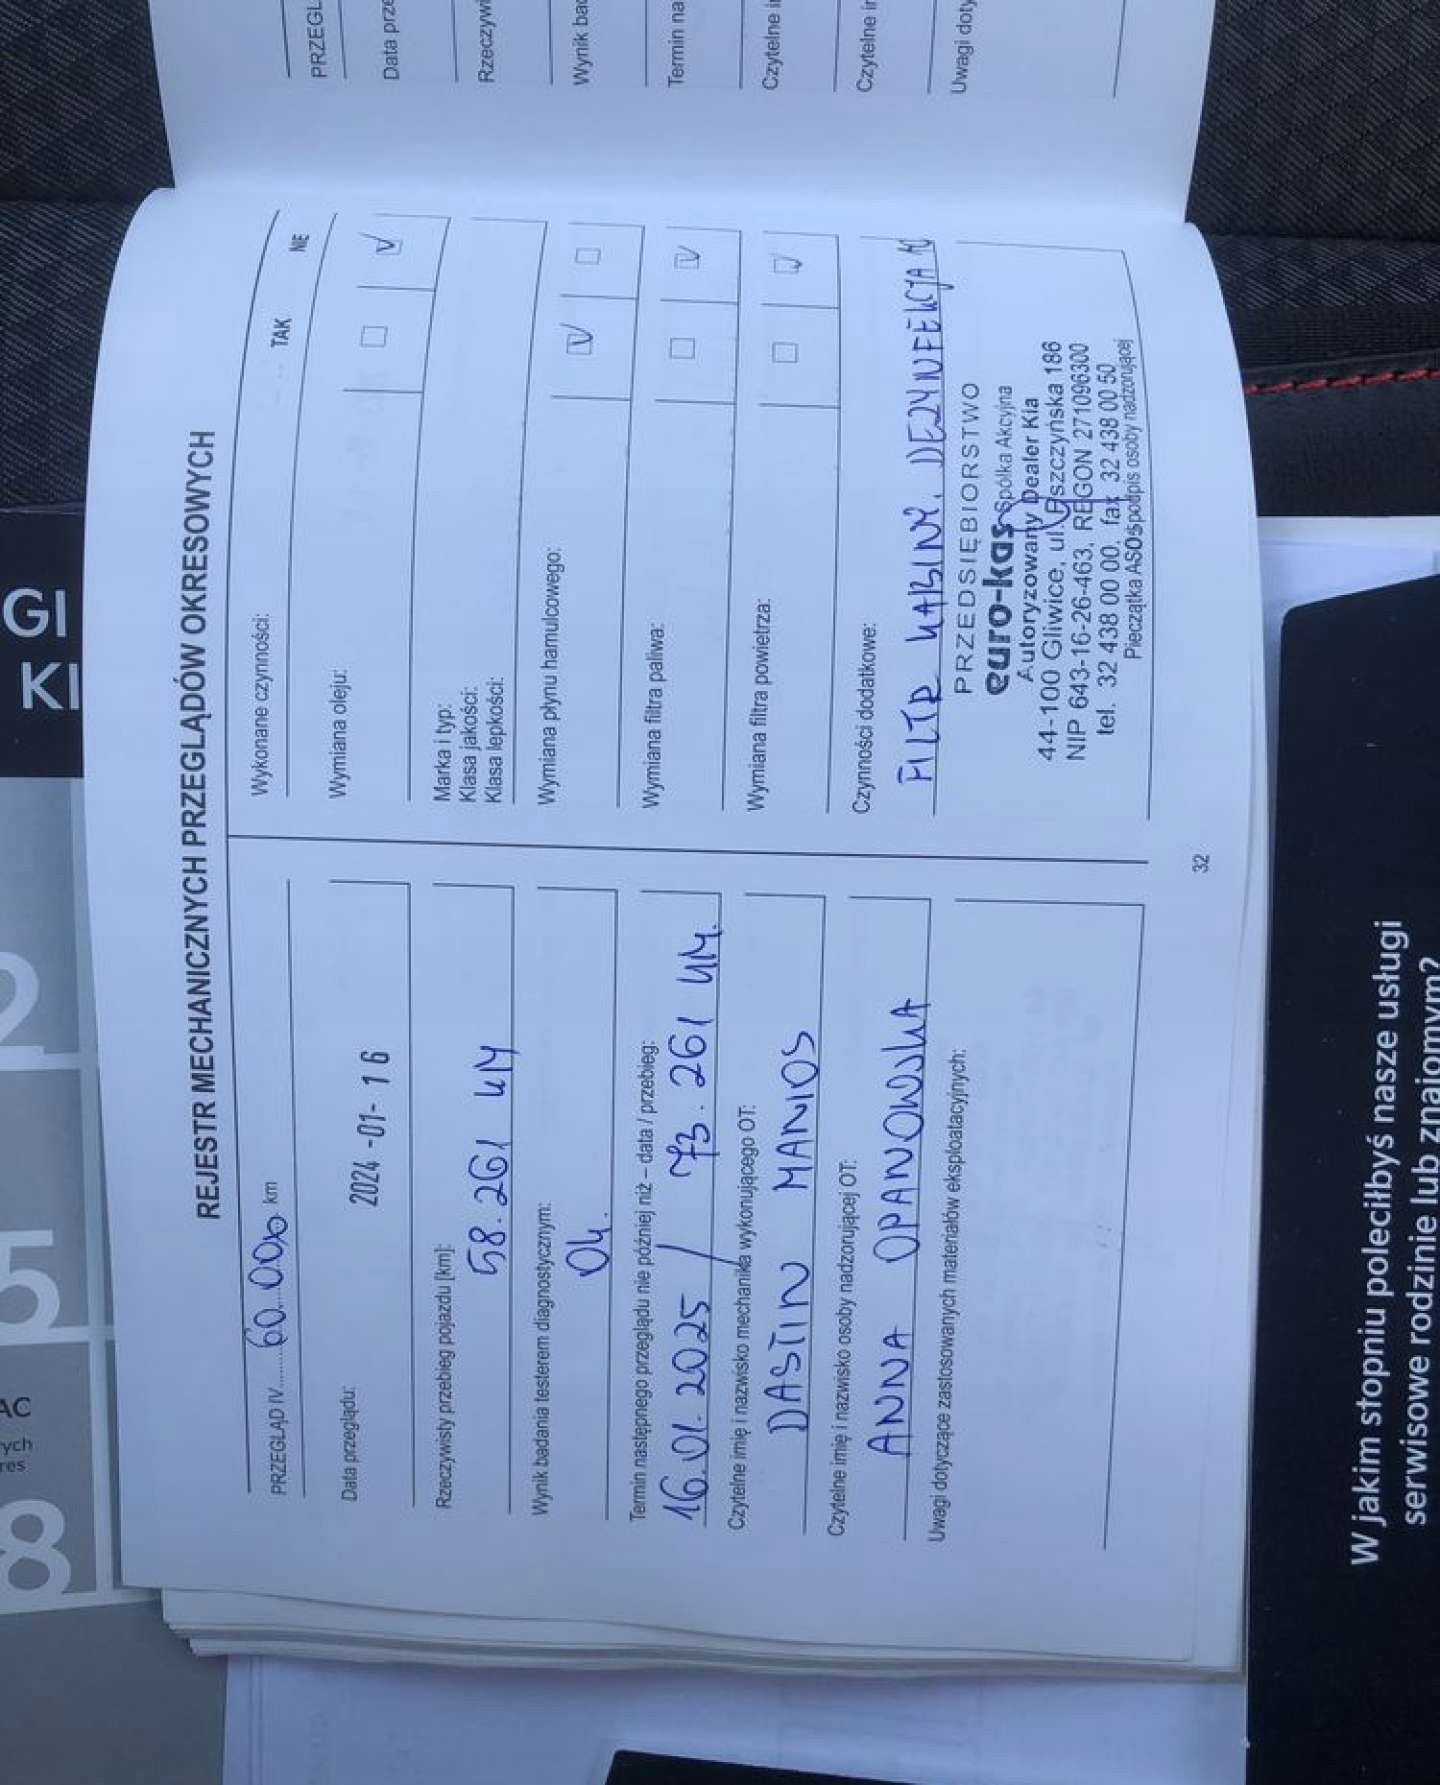 REJESTR MECHANICZNYCH PRZEGLĄDÓW OKRESOWYCH
PRZEGLĄD IV 60.000 km
Data przeglądu:
2024-01-16
Rzeczywisty przebieg pojazdu [km]:
58.261 KM
Wynik badania testerem diagnostycznym:
Ok.
Termin następnego przeglądu nie później niż – data / przebieg:
16.01.2025 / 73.261 KM.
Czytelne imię i nazwisko mechanika wykonującego OT:
DASTIN MANIOS
Czytelne imię i nazwisko osoby nadzorującej OT:
ANNA OPANOWSKA
Uwagi dotyczące zastosowanych materiałów eksploatacyjnych:
Wykonane czynności: TAK NIE
Wymiana oleju:
Marka i typ:
Klasa jakości:
Klasa lepkości:
Wymiana płynu hamulcowego:
Wymiana filtra paliwa:
Wymiana filtra powietrza:
Czynności dodatkowe:
FILTR KABINY. DEZYNFEKCJA
PRZEDSIĘBIORSTWO
euro-kas Spółka Akcyjna
Autoryzowany Dealer Kia
44-100 Gliwice, ul. Pszczyńska 186
NIP 643-16-26-463, REGON 271096300
tel. 32 438 00 00, fax 32 438 00 50
Pieczątka ASO i podpis osoby nadzorującej
32
PRZEGL
Data prze
Rzeczywi
Wynik bad
Termin na
Czytelne i
Czytelne i
Uwagi doty
GI
KI
2
5
8
AC
ych
res
W jakim stopniu poleciłbyś nasze usługi
serwisowe rodzinie lub znajomym?